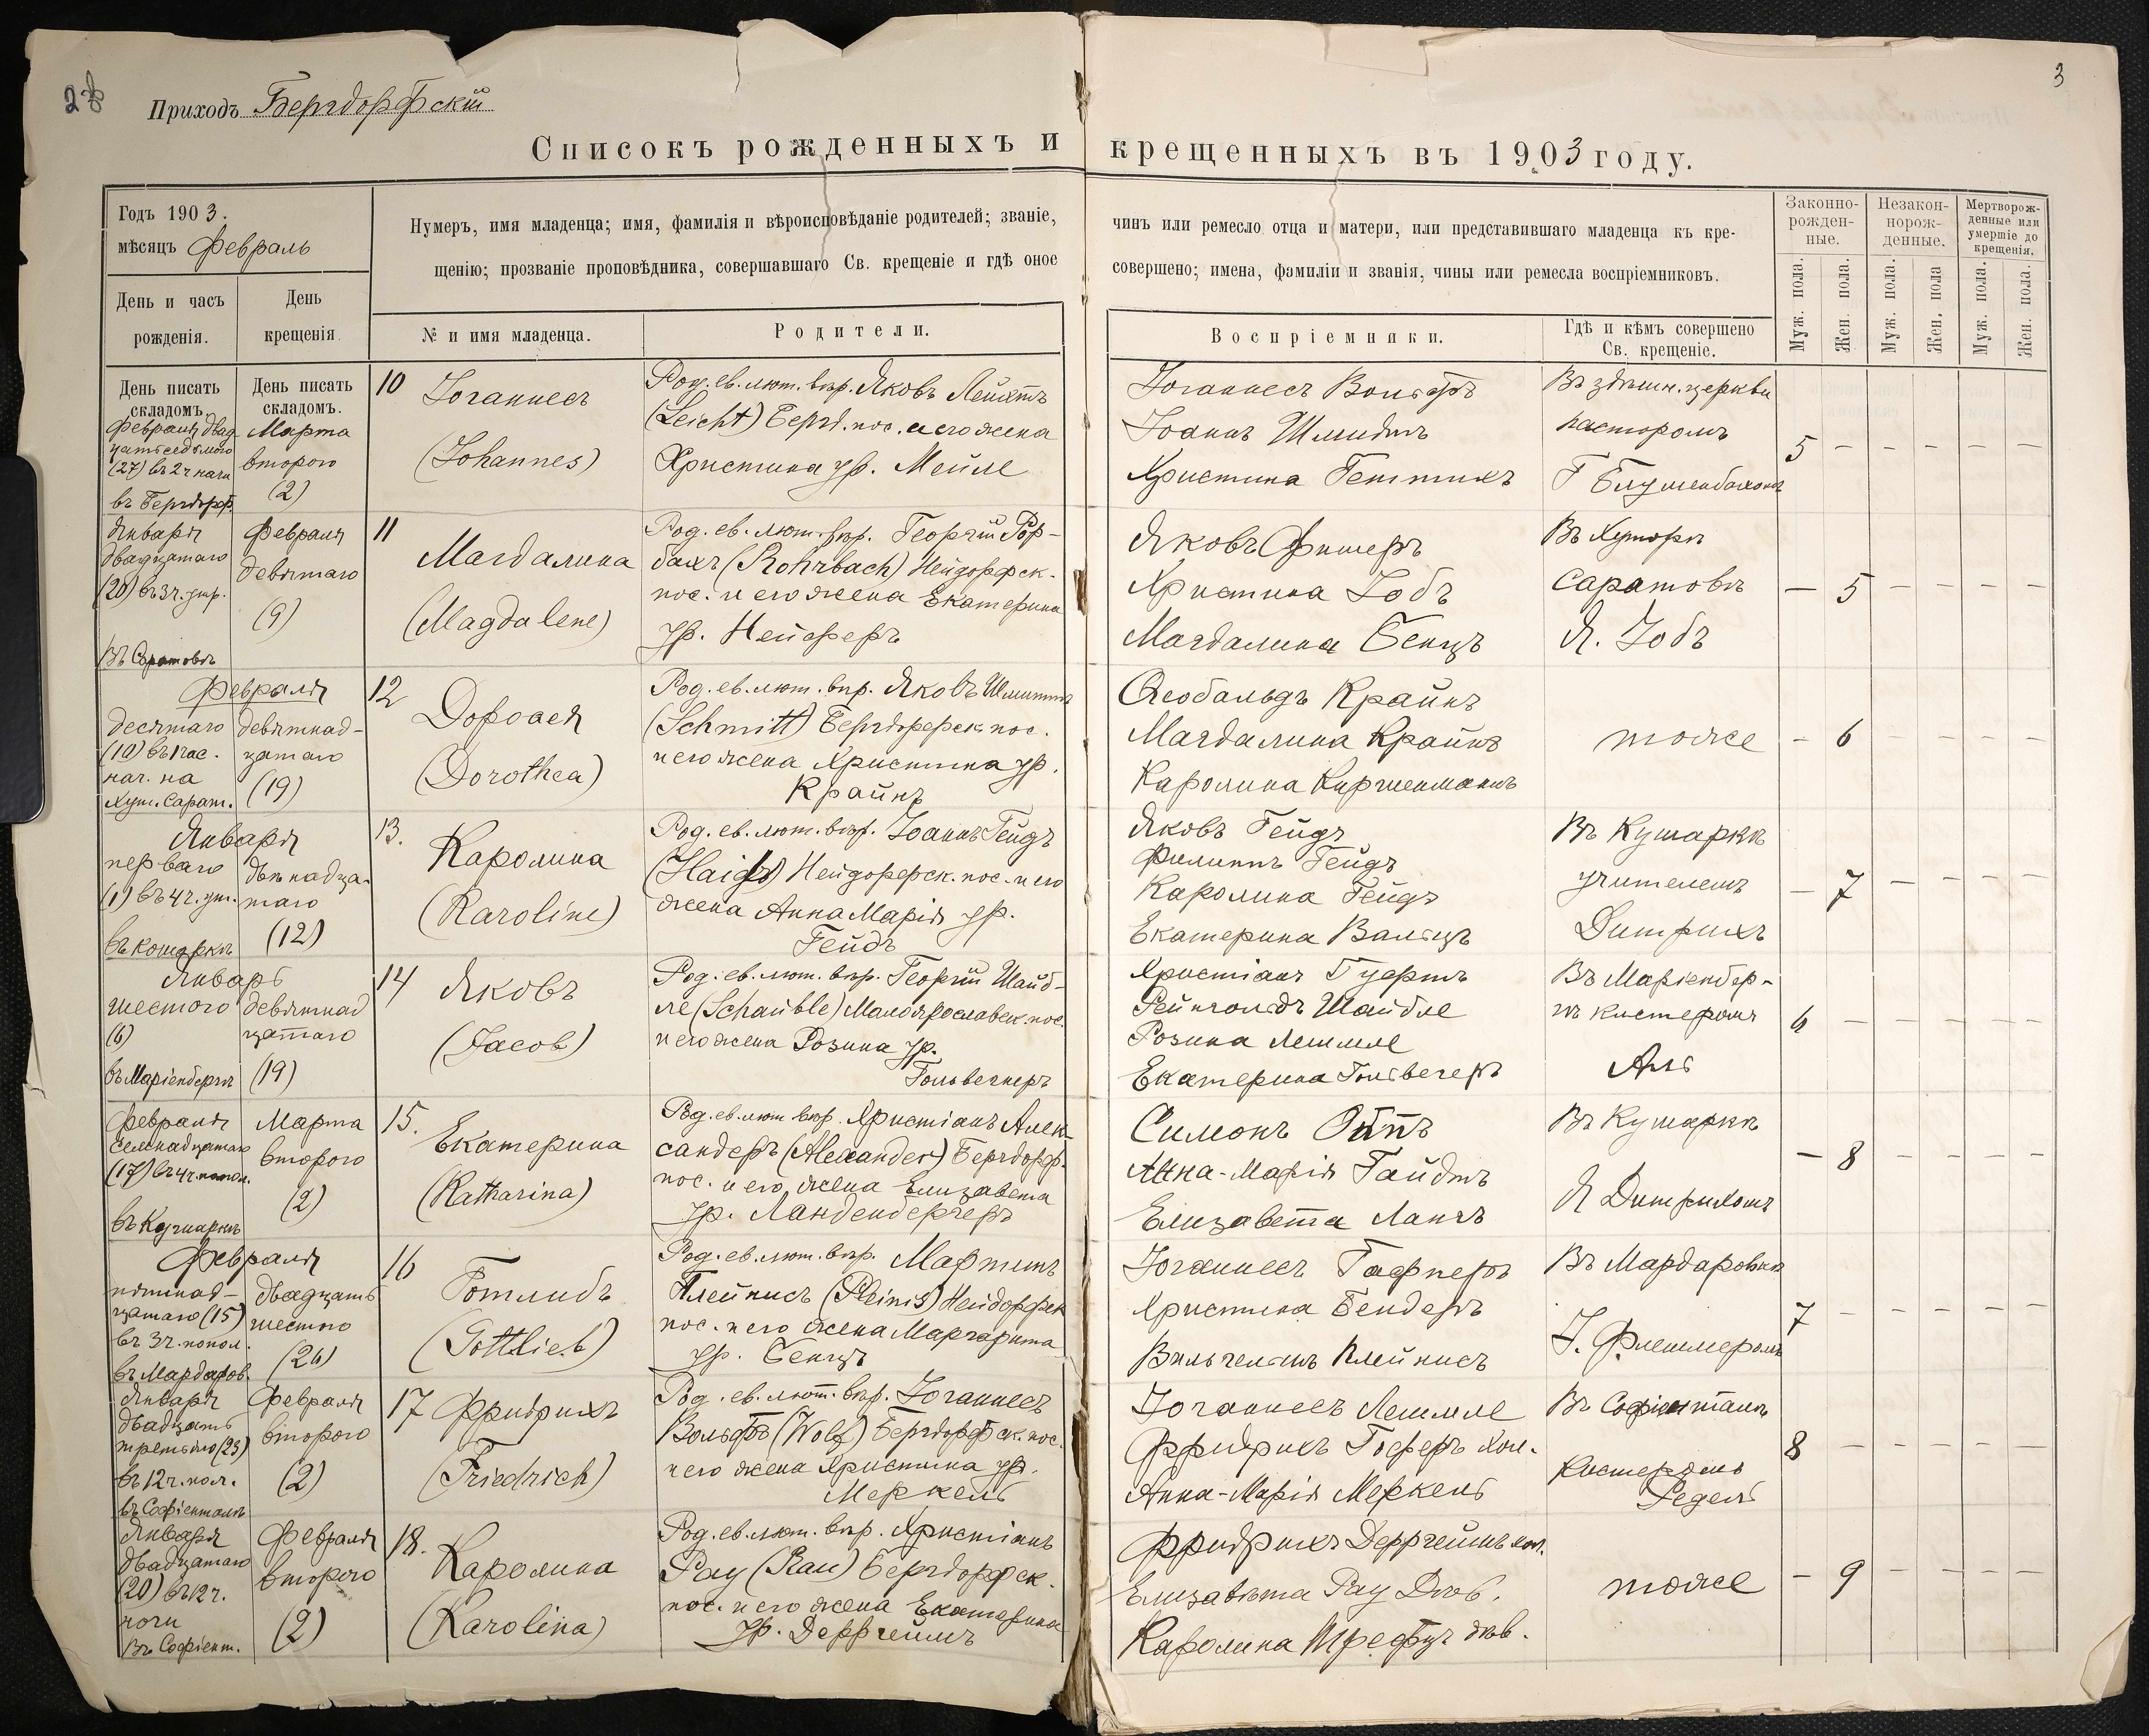 Приходъ Бергдорфскій
3
Списокъ рожденныхъ и крещенныхъ въ 1903 году.
Годъ 1903.
мѣсяцъ Февраль
Нумеръ, имя младенца; имя, фамилія и вѣроисповѣданіе родителей; званіе, чинъ или ремесло отца и матери, или представившаго младенца къ кре-
щенію; прозваніе проповѣдника, совершавшаго Св. крещеніе и гдѣ оное совершено; имена, фамиліи и званія, чины или ремесла воспріемниковъ.
Законно-
рожден-
ные.
Незакон-
норож-
денные.
Мертворож-
денные или
умершіе до
крещенія.
День и часъ
рожденія.
День
крещенія.
№ и имя младенца.
Родители.
Воспріемники.
Гдѣ и кѣмъ совершено
Св. крещеніе.
Муж. пола.
Жен. пола.
Муж. пола.
Жен. пола
Муж. пола.
Жен. пола.
День писать
складомъ.
День писать
складомъ.
Февраля двад
цать седьмого
(27) въ 2 ч ночи
въ Бергдорф.
Марта
второго
(2)
10 Іоганнесъ
(Johannes)
Род. ев. лют. вѣр. Яковъ Лейхтъ
(Leicht) Бергд. пос. и его жена
Христина ур. Мейле
Іоганнесъ Вольфъ
Іоаннъ Шмидтъ
Христина Геттихъ
Въ здѣшн. церкви
пасторомъ
5 - - - - -
Января
двадцатаго
(20) въ 3 ч. утр.
Въ Саратовѣ
Февраля
девятаго
(9)
11
Магдалина
(Magdalene)
Род. ев. лют. вѣр. Георгій Рор-
бахъ (Rohrbach) Нейдорфск.
пос. и его жена Екатерина
ур. Нейферъ
Яковъ Фишеръ
Христина Зобъ
Магдалина Бенцъ
Въ Хуторѣ
Саратовѣ
Я. Зобъ
- 5 - - - -
Февраля
десятаго
(10) въ 1 час.
ноч. на
Хут. Сарат.
девятнад-
цатаго
(19)
12
Дороѳея
(Dorothea)
Род. ев. лют. вѣр. Яковъ Шмиттъ
(Schmitt) Бергдорфск. пос.
и его жена Христина ур.
Крайнъ
Ѳеобальдъ Крайнъ
Магдалина Крайнъ
Каролина Киршенманъ
тоже
- 6 - - - -
Января
перваго
(1) въ 4 ч. ут.
въ Кошаркѣ
двѣнадца-
таго
(12)
13.
Каролина
(Karoline)
Род. ев. лют. вѣр. Іоаннъ Гейдъ
Нейдорфск. пос. и его
жена Анна Марія ур.
Гейдъ
Яковъ Гейдъ
Филиппъ Гейдъ
Каролина Гейдъ
Екатерина Вальцъ
Въ Кушаркѣ
учителемъ
Дитрихъ
- 7 - - - -
Январь
шестого
(6)
въ Маріенбергѣ
девятнад
цатаго
(19)
14 Яковъ
(Jacob)
Род. ев. лют. вѣр. Георгій Шайб-
ле (Schaüble) Малоярославск. пос.
и его жена Розина ур.
Гольвегнеръ
Христіанъ Гуфртъ
Рейнгольдъ Шайбле
Розина Лешмле
Въ Маріенбер-
гѣ кистеромъ
Аль
6 - - - - -
Февраля
семнадцатаго
(17) въ 4 ч. попол.
въ Кушаркѣ
Марта
второго
(2)
15.
Екатерина
(Katharina)
Род. ев. лют. вѣр. Христіанъ Алек-
сандеръ (Alexander) Бергдорф.
пос. и его жена Елизавета
ур. Ланденбергеръ
Симонъ Оттъ
Анна-Марія Гайдтъ
Елизавета Лангъ
Въ Кушаркѣ
Я Дитрихомъ
- 8 - - - -
Февраля
пятнад-
цатаго (15)
въ 3 ч. попол.
въ Мардаров.
двадцать
шестого
(26)
16
Готлибъ
(Gottlieb)
Род. ев. лют. вѣр. Мартинъ
Плейнисъ (Pleinis) Нейдорфск
пос. и его жена Маргарита
ур. Бенцъ
Іоганнесъ Гафнеръ
Христина Бендеръ
Вильгельмъ Плейнисъ
Въ Мардаровкѣ
7 - - - - -
Января
двадцать
третьяго (23)
въ 12 ч. пол.
въ Софіенталѣ
Февраля
второго
(2)
17 Фридрихъ
(Friedrich)
Род. ев. лют. вѣр. Іоганнесъ
Вольфъ (Wolf) Бергдорфск. пос.
и его жена Христина ур.
Меркель
Іоганнесъ Лешмле
Фридрихъ Гоферъ хол.
Анна-Марія Меркель
Въ Софіенталѣ
Кистеромъ
Редель
8 - - - - -
Января
двадцатаго
(20) въ 12 ч.
ночи
Въ Софіент.
Февраля
второго
(2)
18.
Каролина
(Karolina)
Род. ев. лют. вѣр. Христіанъ
Рау (Rau) Бергдорфск.
пос. и его жена Екатерина
ур. Дерргеймъ
Фридрихъ Дерргеймъ хол.
Елизавета Рау Дѣв.
Каролина дѣв.
тоже
- 9 - - - -